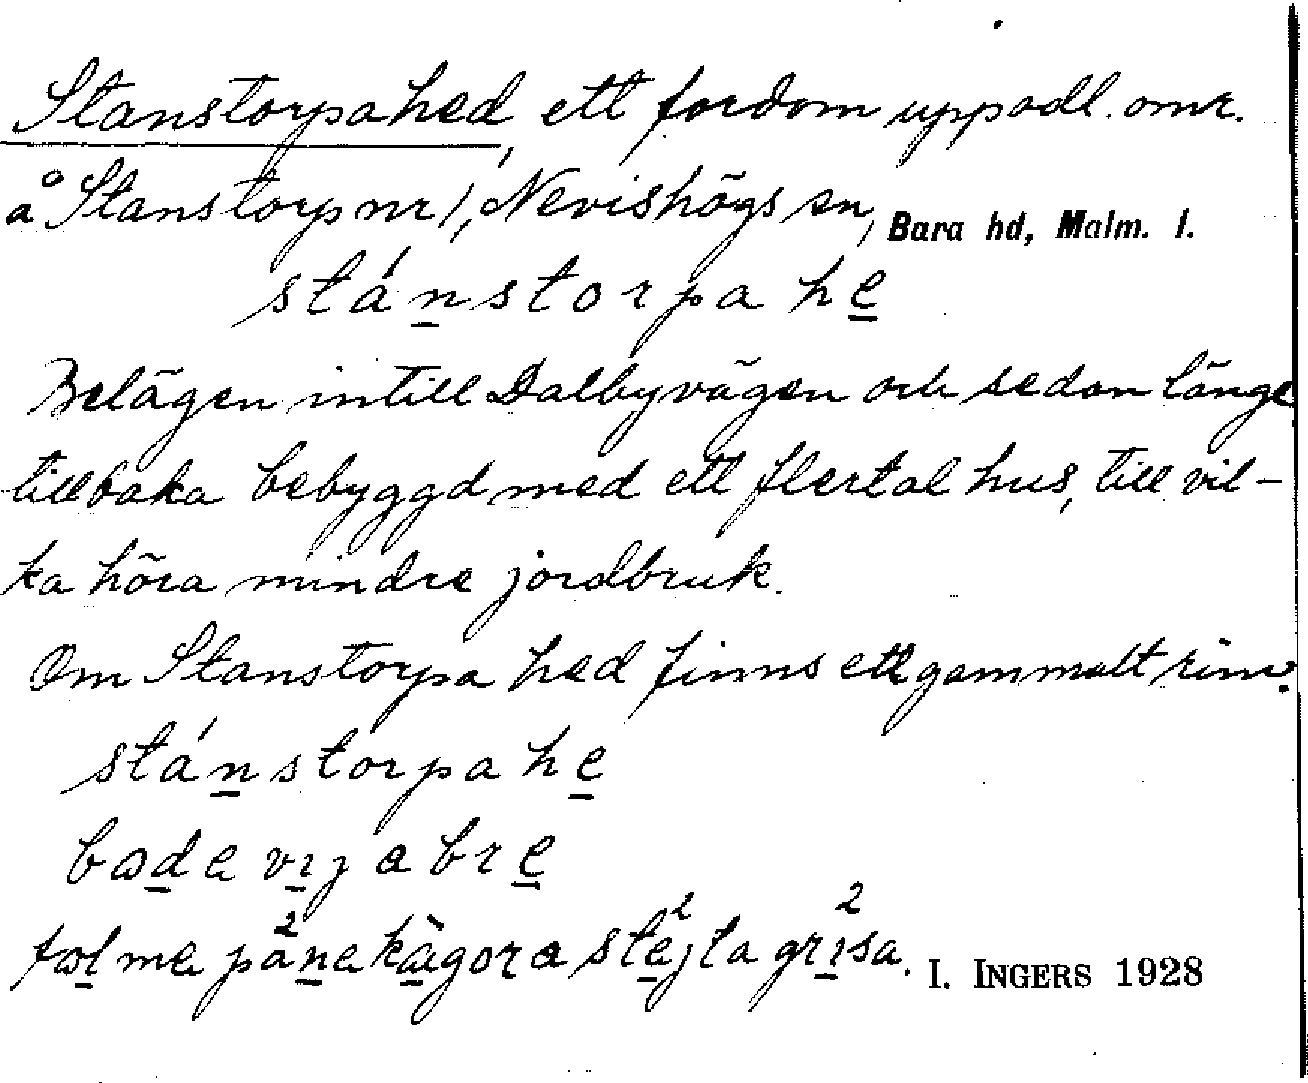 Stanstorpahed, ett fordom uppodl. omr.
å Stanstorp nr 1, Nevishögs sn, Bara hd, Malm. l.
stánstorpa he
Belägen intill Dalbyvägen och sedan länge
tillbaka bebyggd med ett flertal hus, till vil-
ka höra mindre jordbruk.
Om Stanstorpa hed finns ett gammalt rim:
stánstorpa he
vija bre
I. INGERS 1928